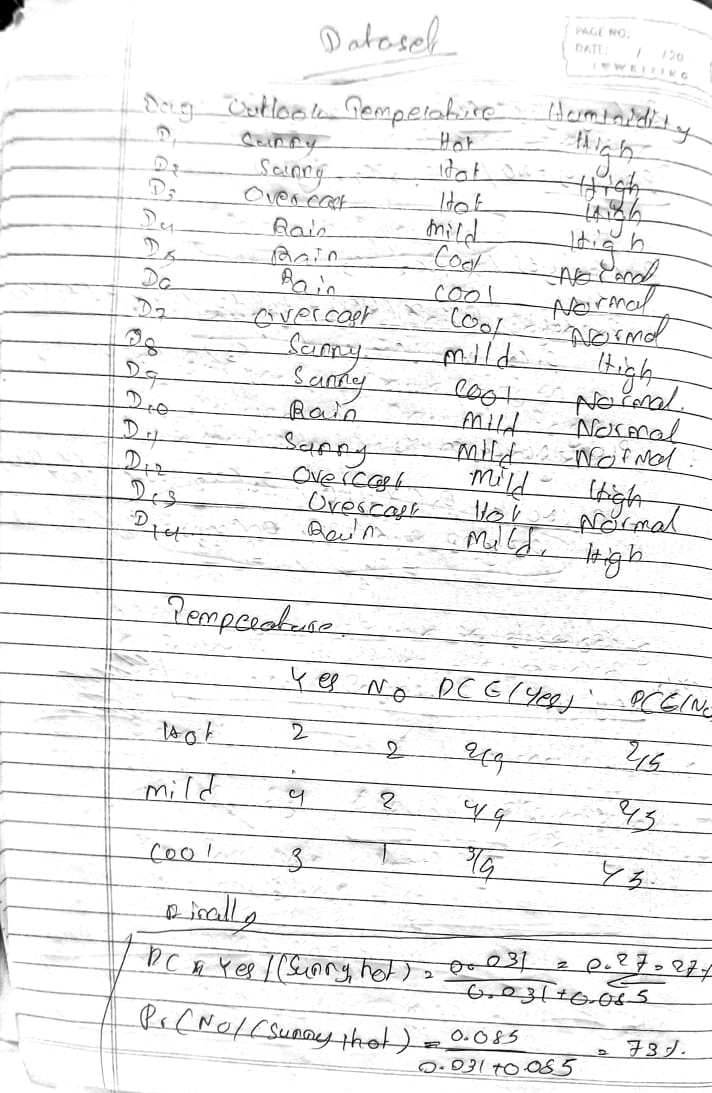 Dataset
PAGE NO:
DATE: / /20
Day Outlook Temperature Humidity
D1 Sunny Hot High
D2 Sunny Hot High
D3 Overcast Hot High
D4 Rain Mild High
D5 Rain Cool Normal
D6 Rain Cool Normal
D7 Overcast Cool Normal
D8 Sunny Mild High
D9 Sunny Cool Normal.
D10 Rain Mild Normal
D11 Sunny Mild Normal.
D12 Overcast Mild High
D13 Overcast Hot Normal
D14 Rain Mild. High
Temperature.
Yes No P(E/Yes) P(E/No
Hot 2 2 2/9 2/5
Mild 4 2 4/9 2/5
Cool 3 1 3/9 1/5.
Finally
P( Yes/(Sunny, hot) = 0.031 / 0.031+0.085 = 0.27 = 27%
P(No/(Sunny, hot) = 0.085 / 0.031+0.085 = 73%.